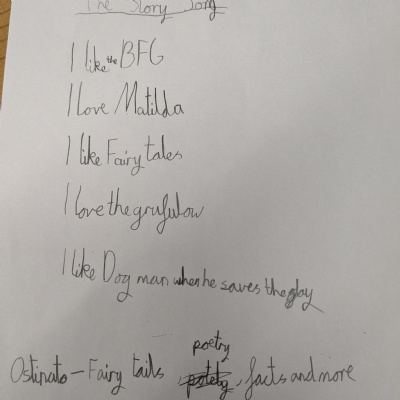 The Story Song
I like the BFG
I love Matilda
I like Fairy tales
I love the grufulow
I like Dog man when he saves the day
poetry
Ostinato - Fairy tails, facts and more